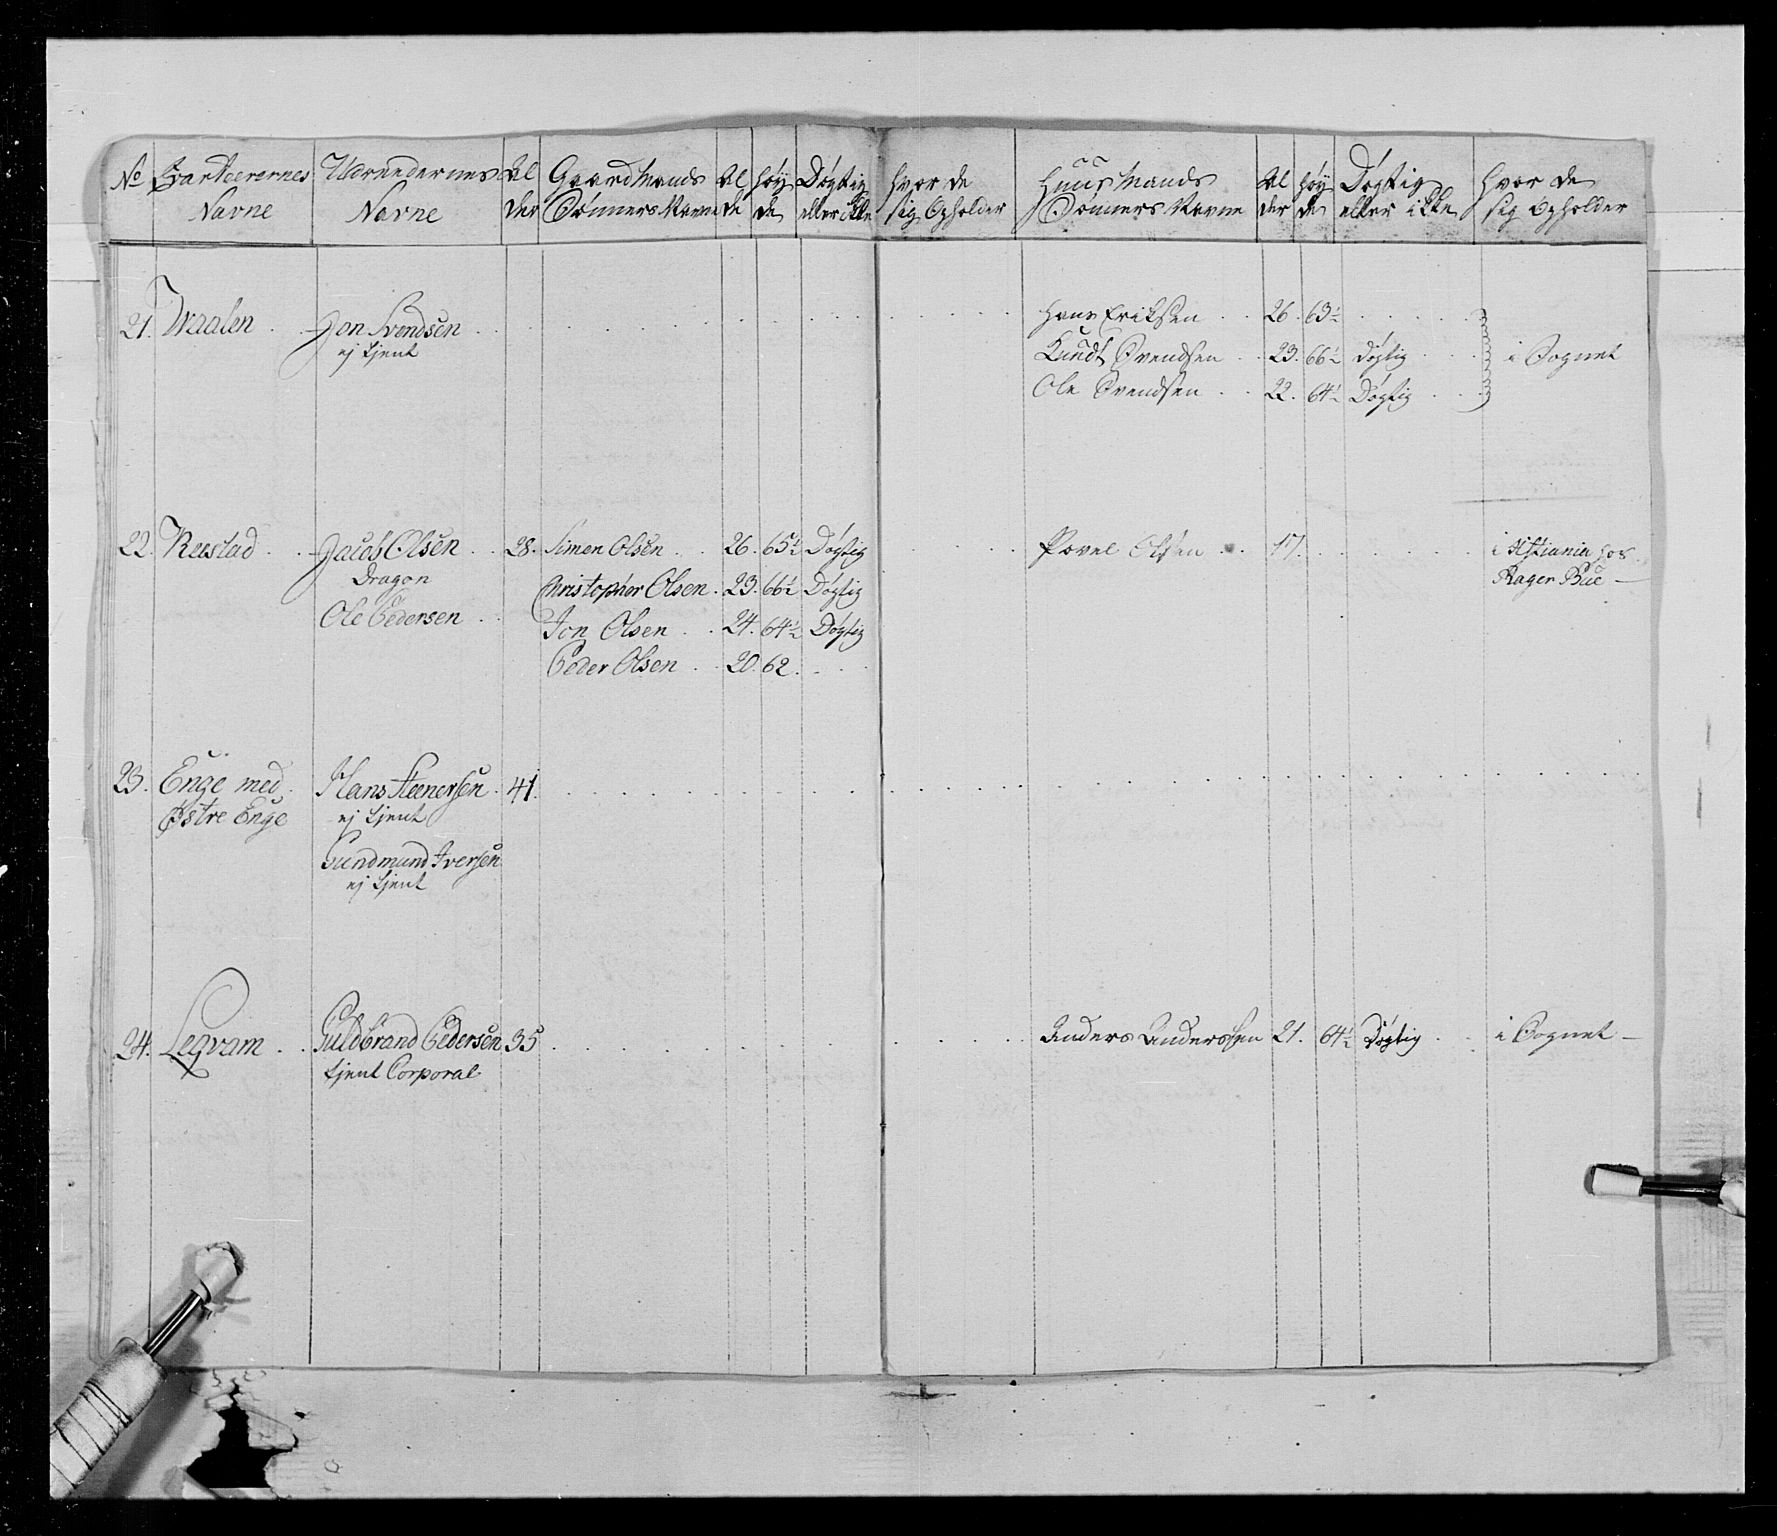 No Qvarteerernes Navne Udrendernes Navne Al der Gaard Mands Sønners Navne Al de høy de Døgtig eller ikke hvor de sig Opholder Huus Mands Sønners Navne Al der høy de Døgtig eller ikke hvor de sig Opholder
21. Jon Svendsen Hans Eriksen 26. 63½
ej tjent Knudt Svendsen 23. 66½ døgtig i Sognet
Ole Svendsen 22. 64½ Døgtig
22. Reestad Jacob Olsen 28. Simen Olsen 26. 65½ Døgtig Povel Olsen 17. i Xstiania hos
Dragon Christopher Olsen 23. 66½ Døgtig Rager Bue
Ole Pedersen Jon Olsen 24. 64½ Døgtig
Peder Olsen 20. 62.
23. Enge med Hans Steenersen 41.
Østre Enge ej tjent
Gundmund Iversen
ej tjent
24. Leqvam Guldbrand Pedersen 35 Anders Anderssen 21. 64½ Døgtig i Sognet
tjent Corporal